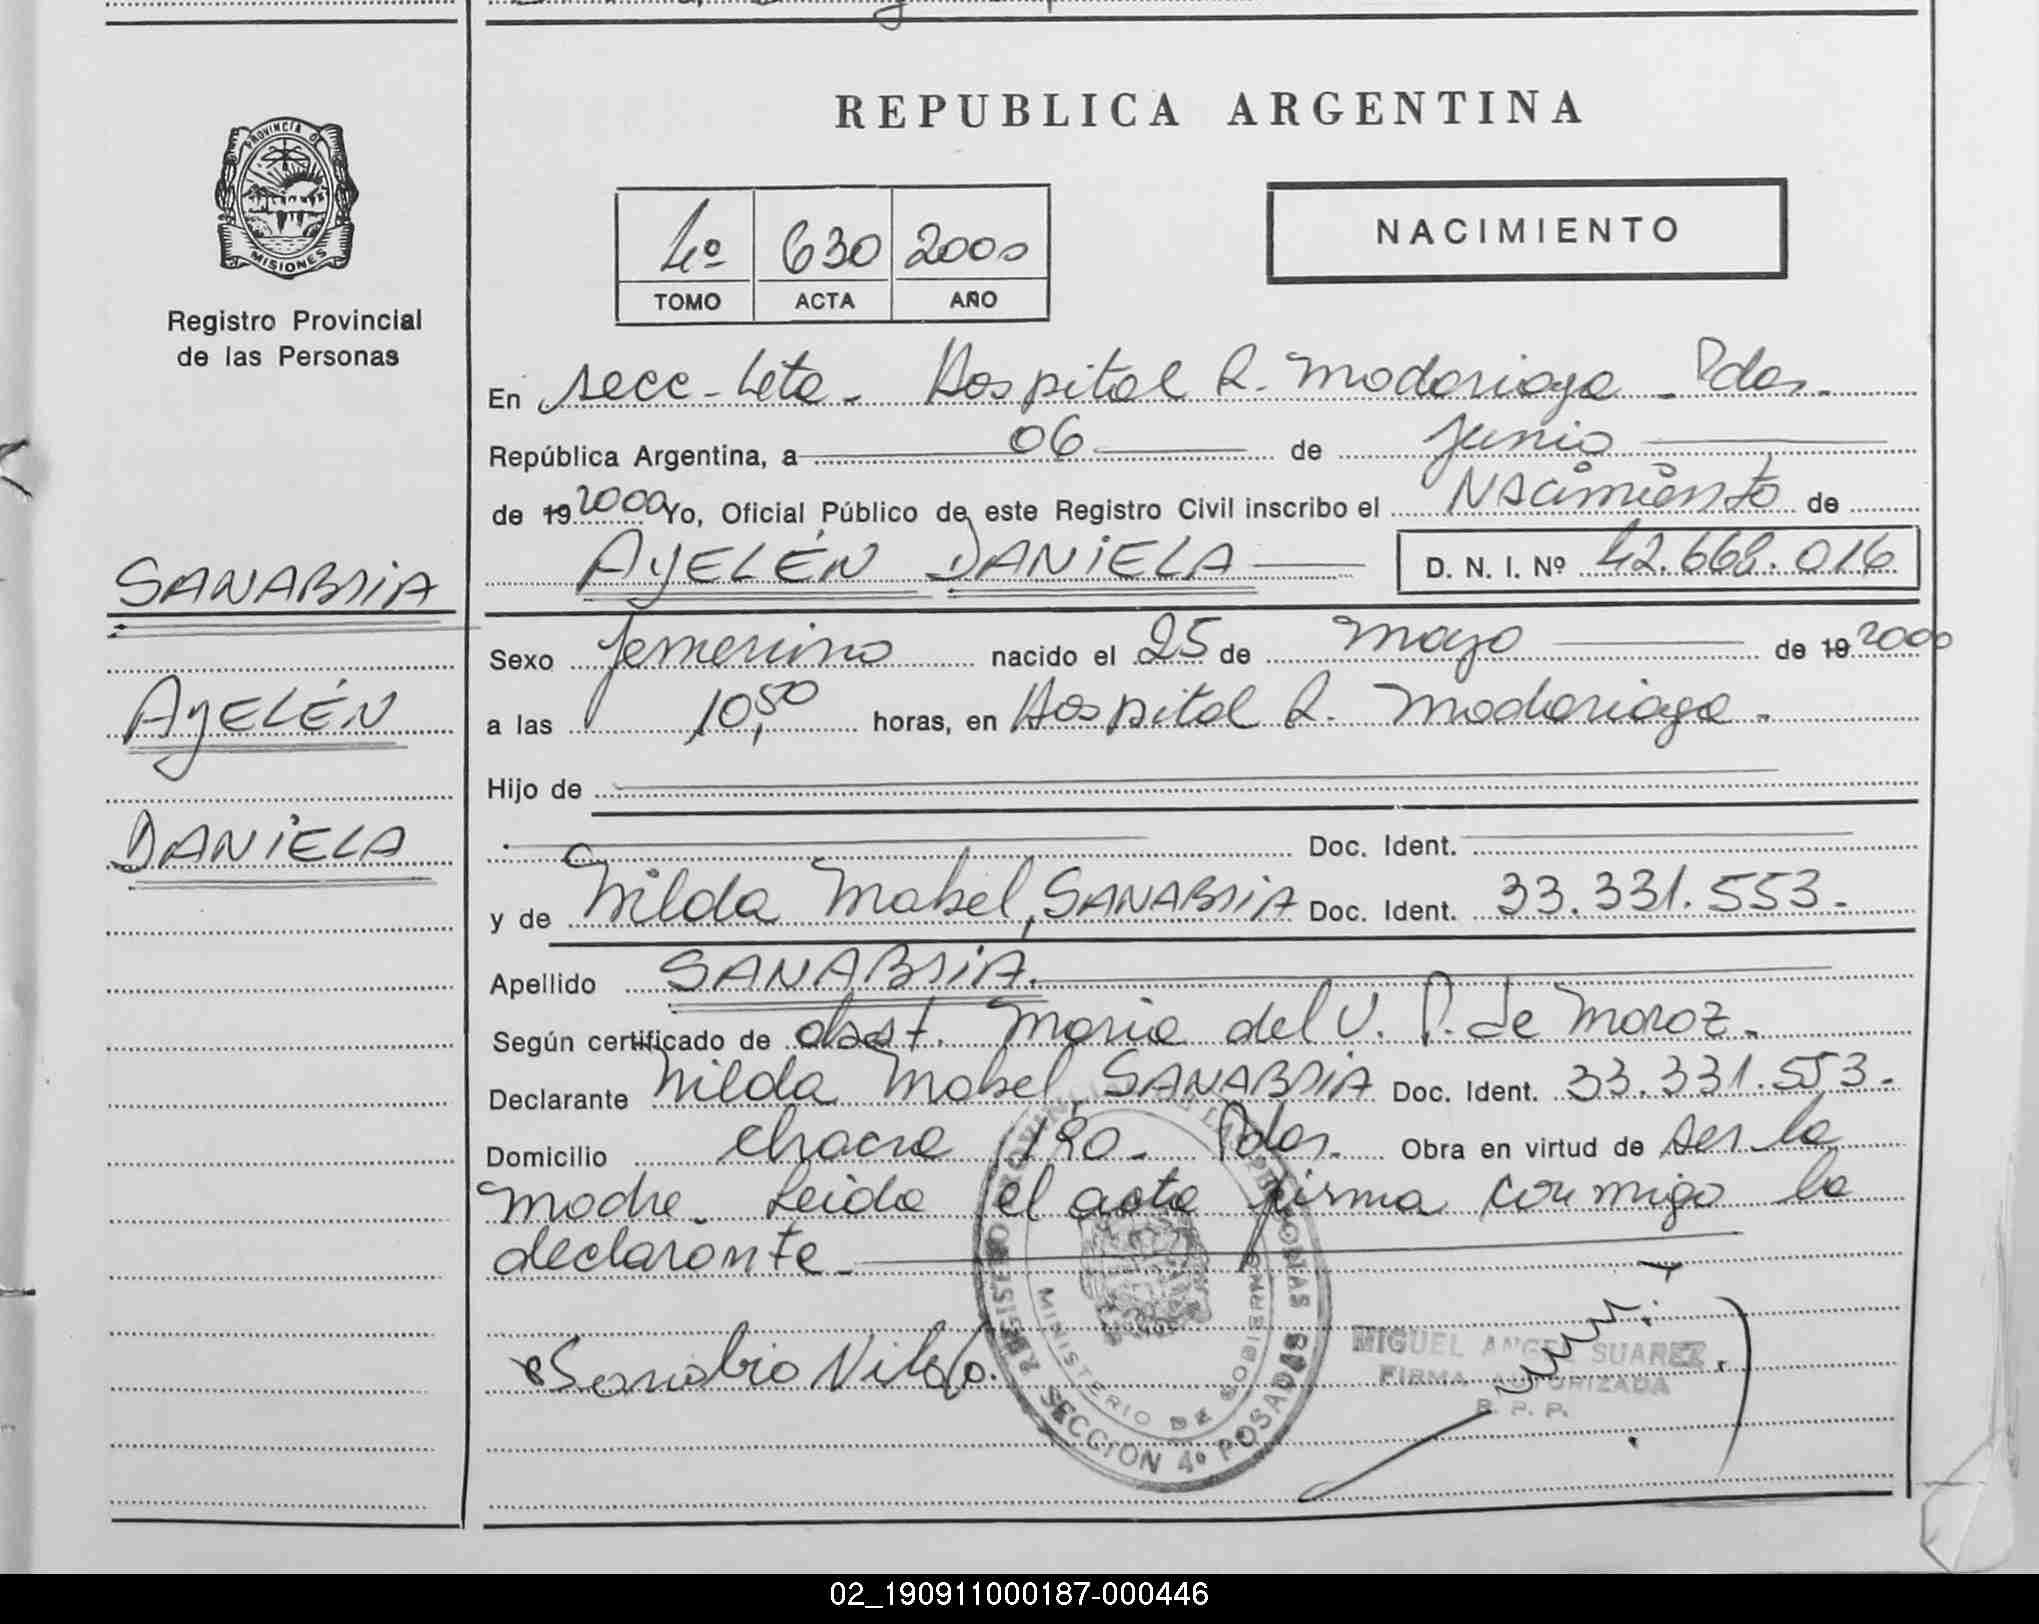 REPUBLICA ARGENTINA
PROVINCIA DE
MISIONES
Registro Provincial
de las Personas
4º 630 2000
TOMO ACTA AÑO
NACIMIENTO
En secc. 4ta. Hospital R. Madariaga - Pdas.
República Argentina, a 06 de junio
de 19 2000 Yo, Oficial Público de este Registro Civil inscribo el Nacimiento de
AYELÉN DANIELA D. N. I. Nº 42.668.016
SANABRIA
AYELÉN
DANIELA
Sexo femenino nacido el 25 de mayo de 19 2000
a las 10,50 horas, en Hospital R. Madariaga.
Hijo de
Doc. Ident.
y de Nilda Mabel, SANABRIA Doc. Ident. 33.331.553.
Apellido SANABRIA.
Según certificado de obst. Maria del V. P. de Moroz.
Declarante Nilda Mabel, SANABRIA Doc. Ident. 33.331.553.
Domicilio chacra 180. Pdas. Obra en virtud de ser la
madre. Leida el acta firma conmigo la
declarante.
Sanabria Nilda.
REGISTRO PROVINCIAL DE LAS PERSONAS
MINISTERIO DE GOBIERNO
SECCION 4º POSADAS
MIGUEL ANGEL SUAREZ
FIRMA AUTORIZADA
R. P. P.
02_190911000187-000446